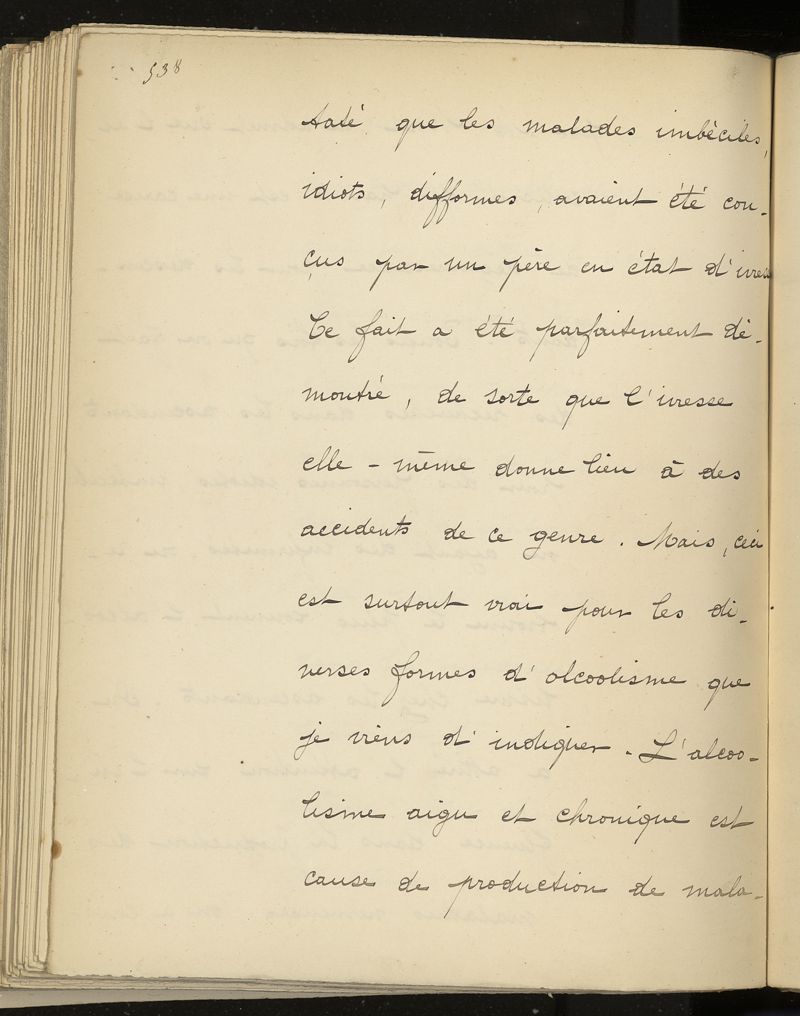 538
taté que les malades imbéciles,
idiots, difformes, avaient été con-
çus par un père en état d'ivresse
Ce fait a été parfaitement dé-
montré, de sorte que l'ivresse
elle-même donne lieu à des
accidents de ce genre. Mais, ceci
est surtout vrai pour les di-
verses formes d'alcoolisme que
je viens d'indiquer. L'alcoo-
lisme aigu et chronique est
cause de production de mala-